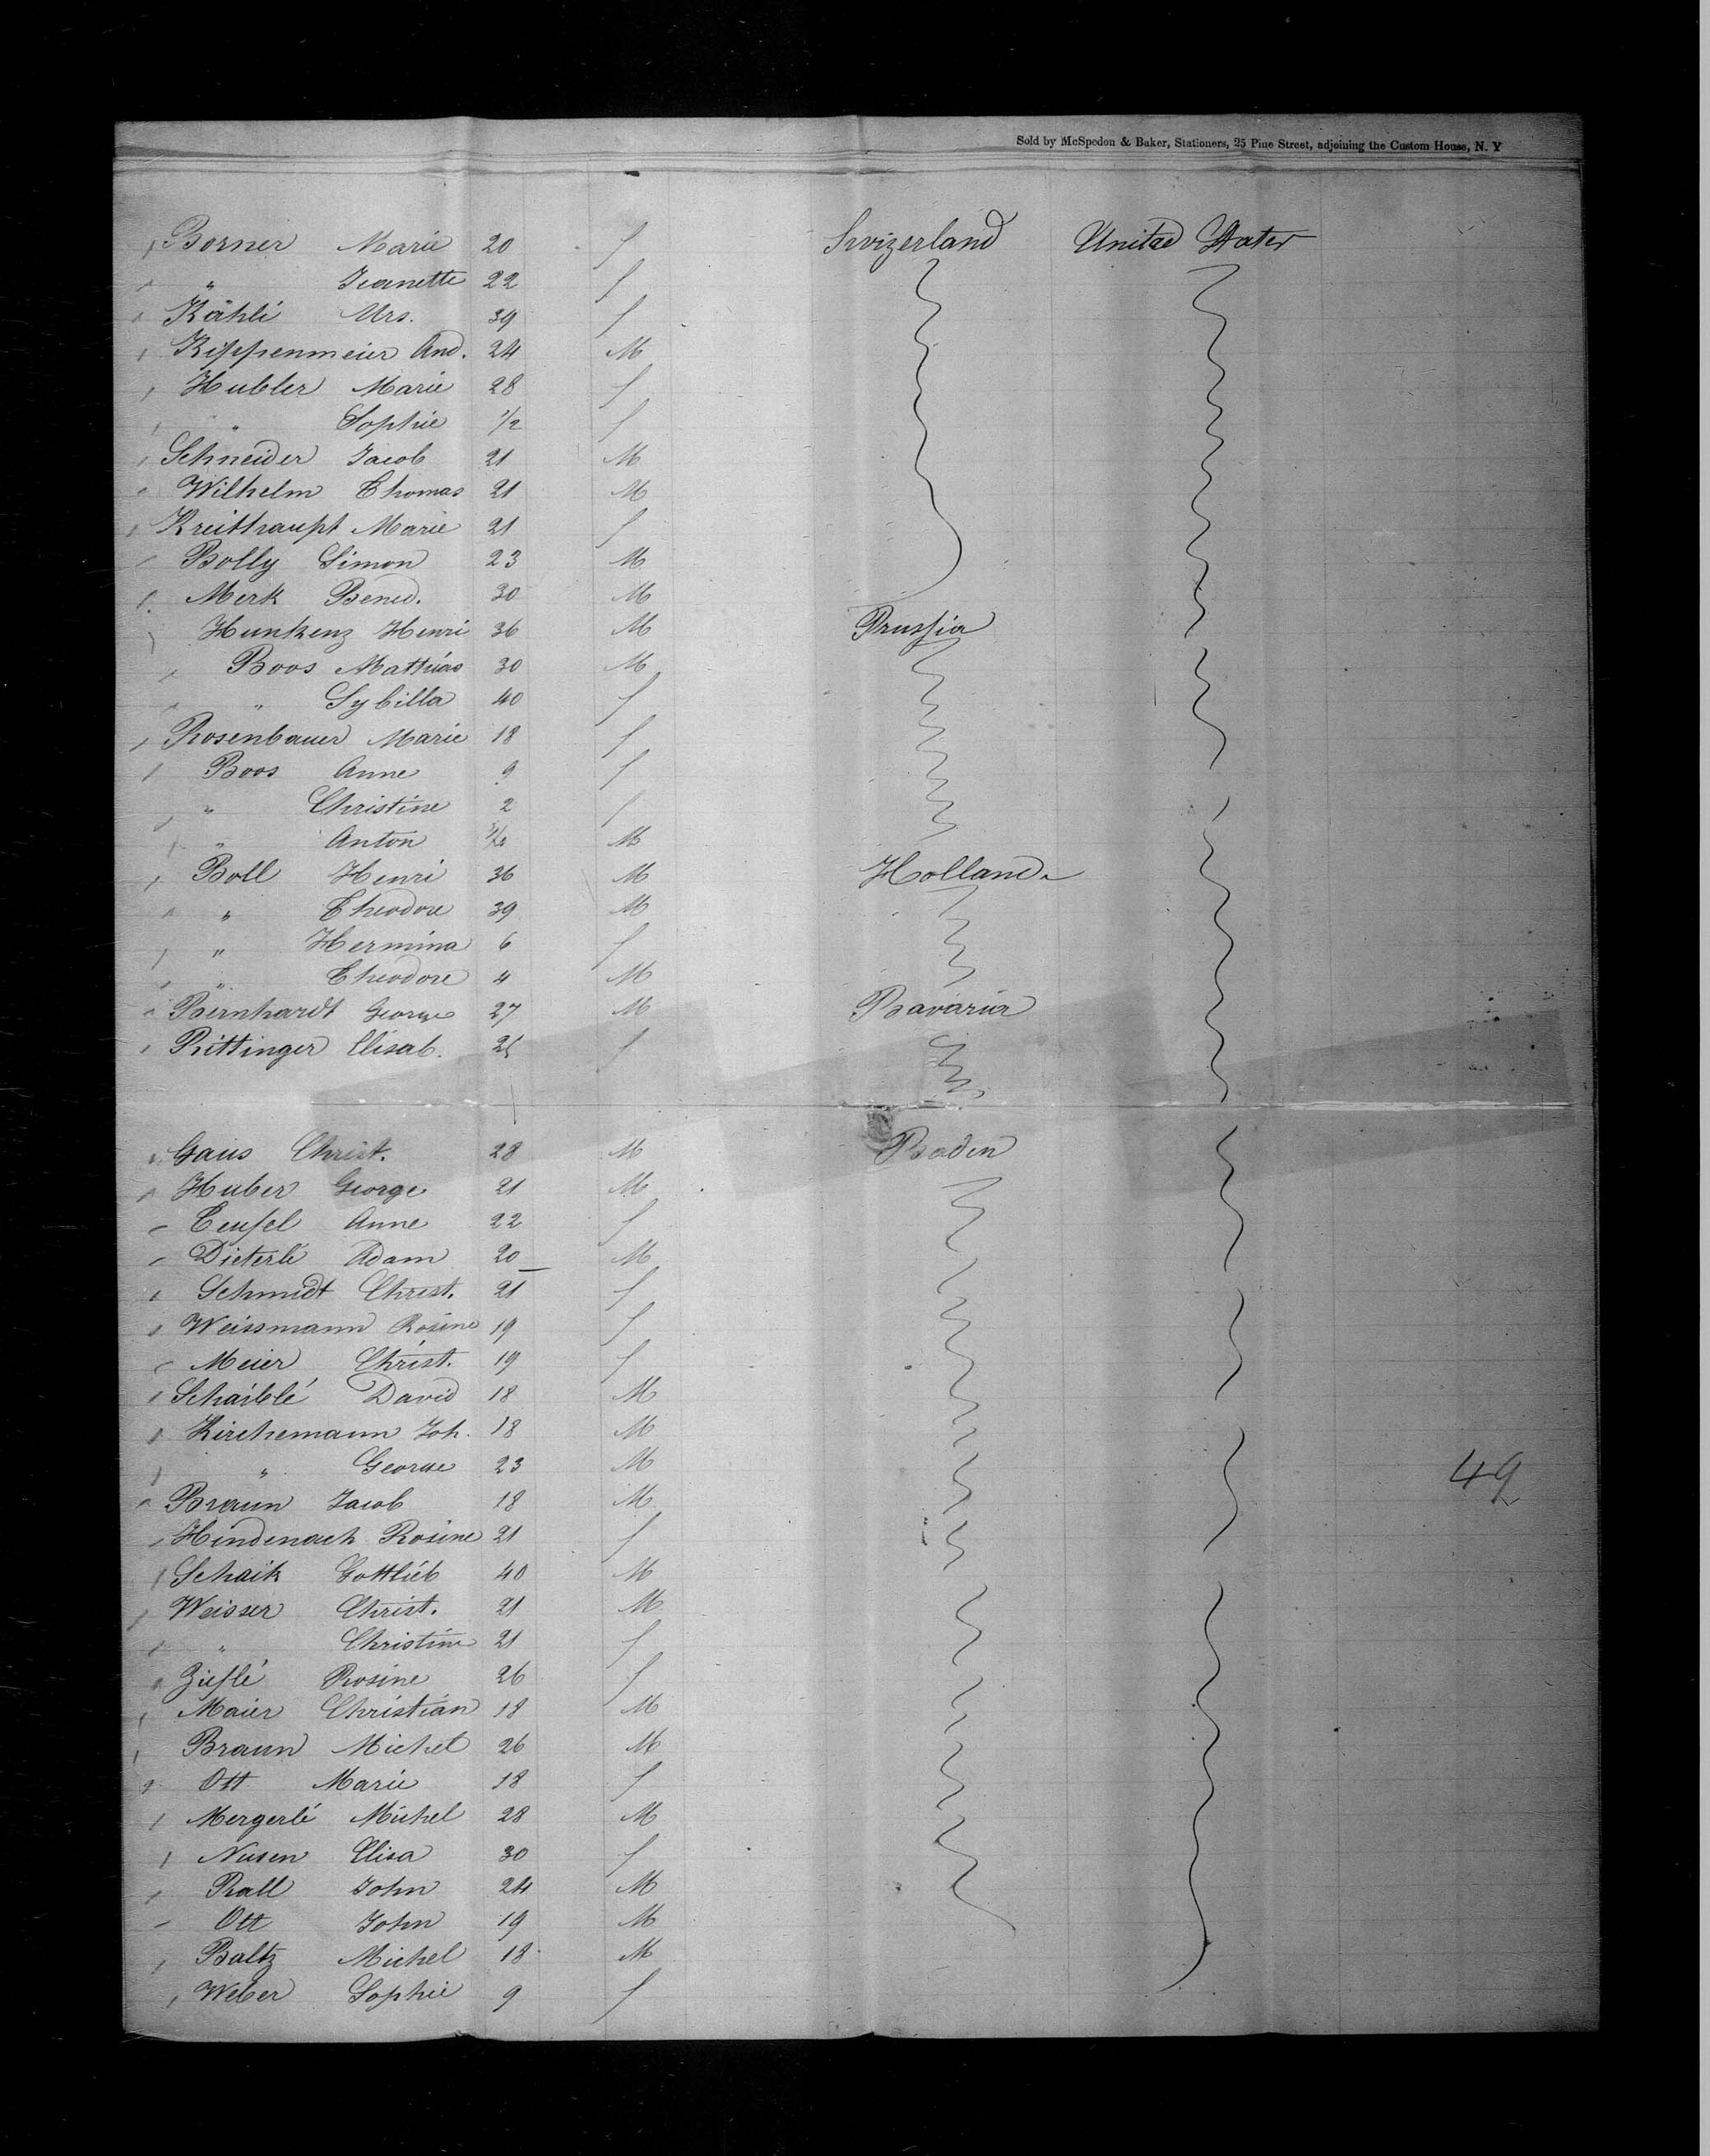 Sold by McSpedon & Baker, Stationers, 25 Pine Street, adjoining the Custom House, N. Y
Borner Marie 20 f Swizerland United States
" Jeanette 22 f
Kähli Mrs. 39 f
Kippenmeier And. 24 M
Hubler Marie 28 f
" Sophie 1/2 f
Schneider Jacob 21 M
Wilhelm Thomas 21 M
Kreithaupt Marie 21 f
Bolly Simon 23 M
Merk Bened. 30 M
Hunkenz Henri 36 M Prussia
Boos Mathias 30 M
" Sybilla 40 f
Rosenbauer Marie 18 f
Boos Anne 9 f
" Christine 2 f
" Anton M
Boll Henri 36 M Holland
" Theodore 39 M
" Hermina 6 f
" Theodore 4 M
Bernhardt George 27 M Bavaria
Rittinger Elisab. f
Gaus Christ. 28 M Baden
Huber George 21 M
Teufel Anne 22 f
Dieterlé Adam 20 M
Schmidt Christ. 21 f
Weissmann Rosine 19 f
Meier Christ. 19 f
Schaiblé David 18 M
Kirchemann Joh. 18 M
" George 23 M 49
Braun Jacob 18 M
Hindenach Rosine 21 f
Schaik Gottlieb 40 M
Weisser Christ. 21 M
" Christine 21 f
Zieflé Rosine 26 f
Maier Christian 18 M
Braun Michel 26 M
Ott Marie 18 f
Mergerlé Michel 28 M
Nusen Elisa 30 f
Rall John 24 M
Ott John 19 M
Baltz Michel 18 M
Weber Sophie 9 f